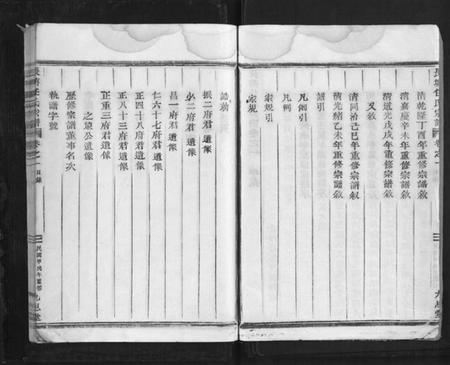 清乾隆丁酉年重修宗譜敘
清嘉慶辛未年重修宗譜敘
清道光戊戌年重修宗譜敘
又敘
清同治己巳年重修宗譜敘
清光緒乙未年重修宗譜敘
譜引
凡例引
凡例
宗規引
宗規
誥勅
振二府君遺像
必二府君遺像
昌一府君遺像
仁六十七府君遺像
正四十八府君遺像
正八十三府君遺像
正重三府君遺像
之㷍公遺像
歷修宗譜董事名次
執譜字號
長塘任氏宗譜 卷之一 目錄